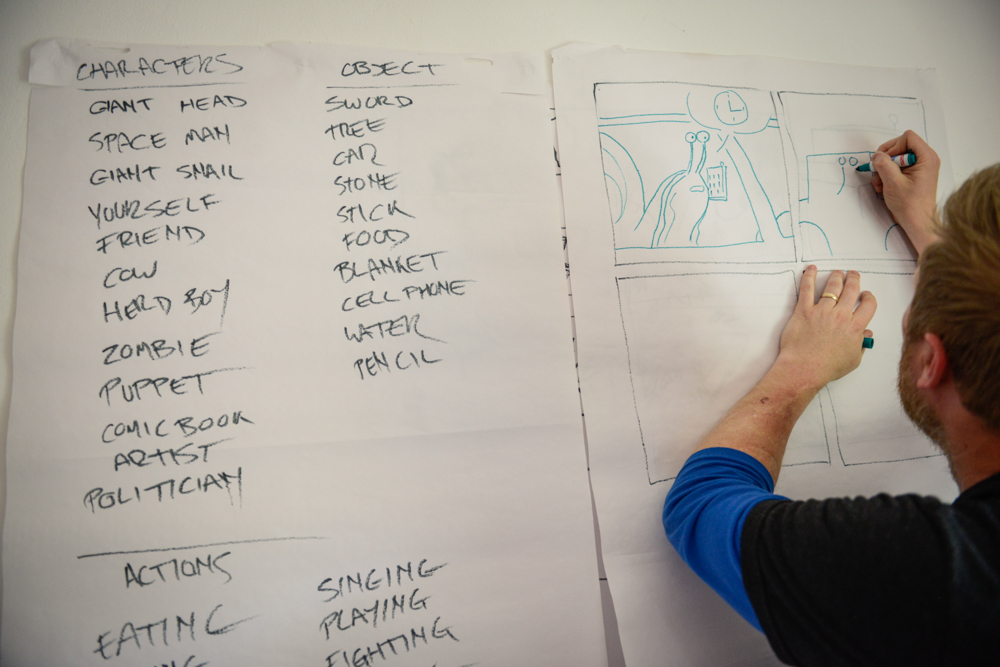 CHARACTERS
GIANT HEAD
SPACE MAN
GIANT SNAIL
YOURSELF
FRIEND
COW
HERD BOY
ZOMBIE
PUPPET
COMIC BOOK
ARTIST
POLITICIAN
OBJECT
SWORD
TREE
CAR
STONE
STICK
FOOD
BLANKET
CELL PHONE
WATER
PENCIL
ACTIONS
EATING
SINGING
PLAYING
FIGHTING